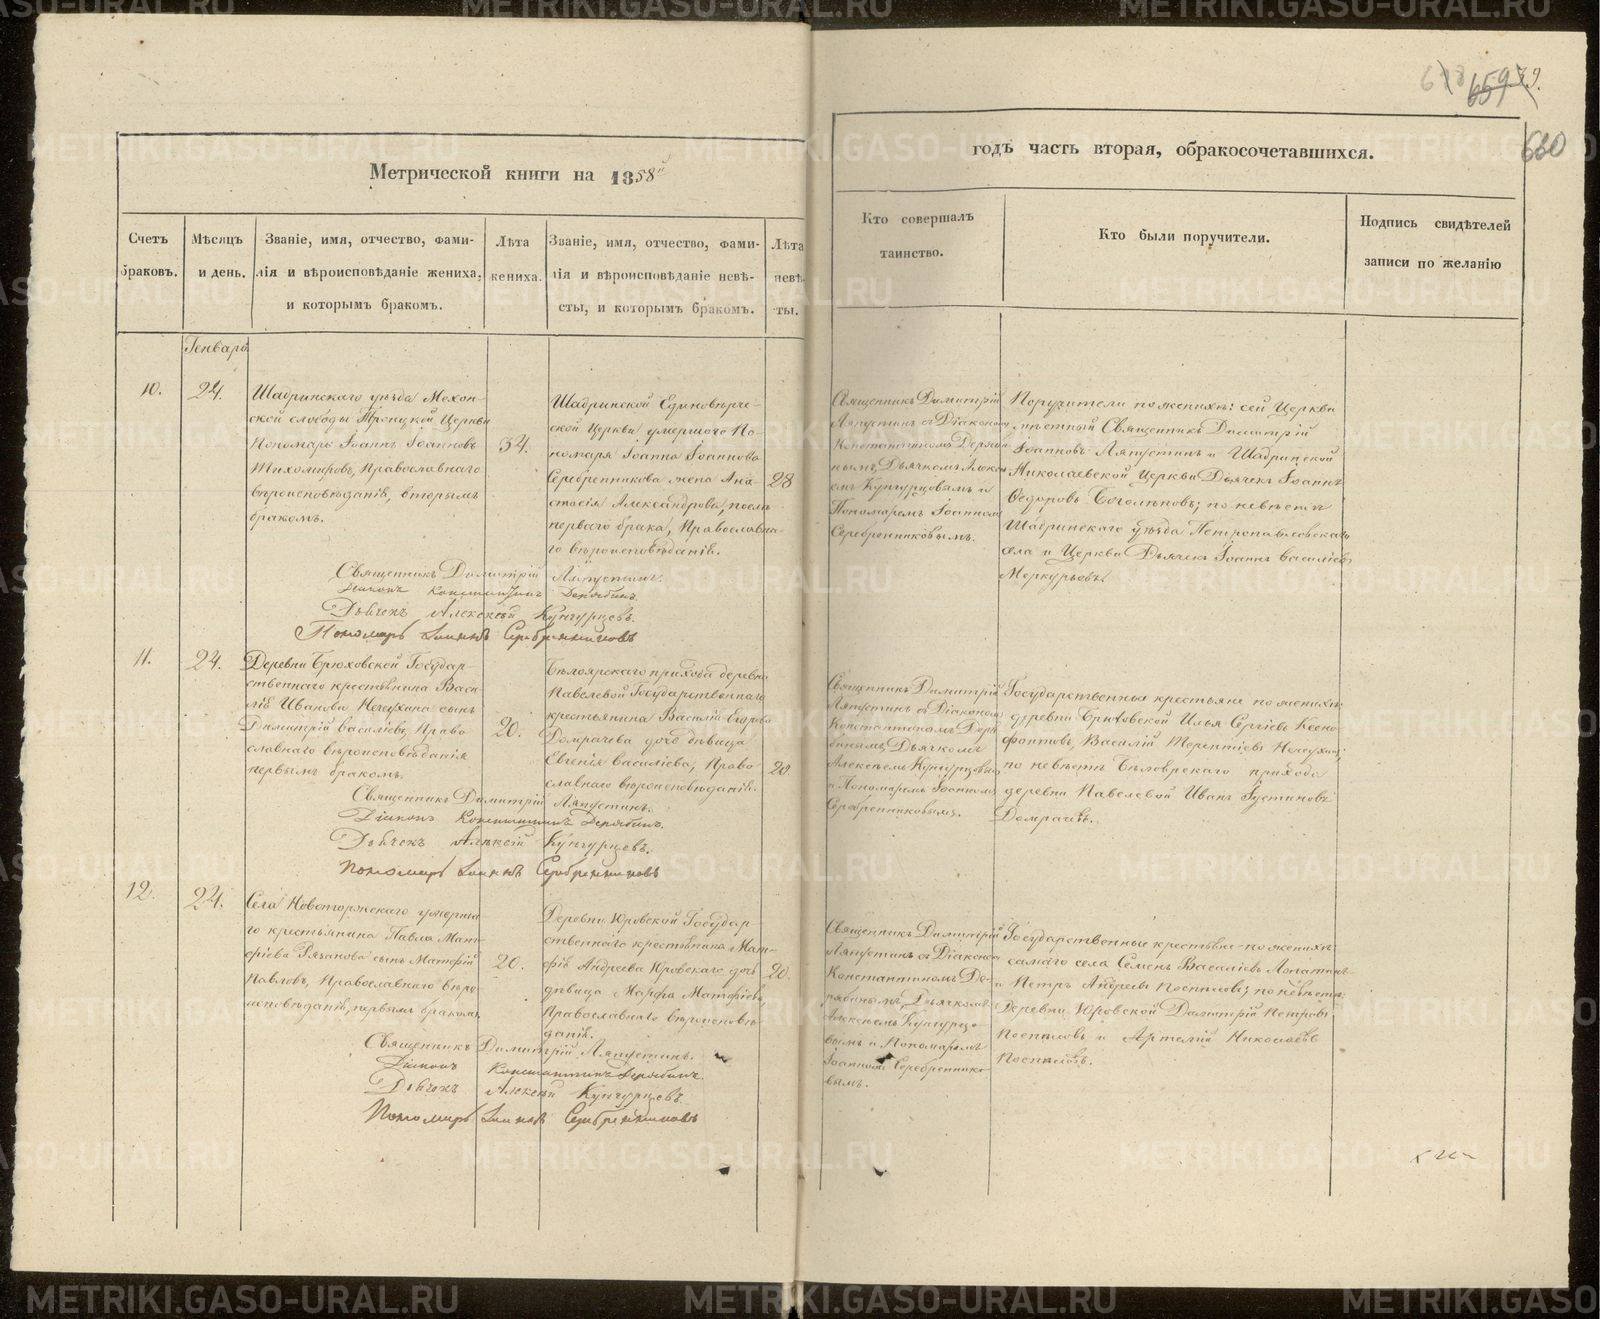 659
79.
660
Метрической книги на 1858й
годъ часть вторая, обракосочетавшихся.
Счетъ браковъ.
Мѣсяцъ и день.
Званіе, имя, отчество, фами-
лія и вѣроисповѣданіе жениха,
и которымъ бракомъ.
Лѣта жениха.
Званіе, имя, отчество, фами-
лія и вѣроисповѣданіе невѣ-
сты, и которымъ бракомъ.
Лѣта невѣ-
ты.
Кто совершалъ
таинство.
Кто были поручители.
Подпись свидѣтелей
записи по желанію
Генварь
10.
24.
Шадринскаго уѣзда Мехон-
ской слободы Троицкой Церкви
Пономарь Іоаннъ Іоанновъ
Тихомировъ, Православнаго
вѣроисповѣданія, вторымъ
бракомъ.
34.
Шадринской Единовѣрче-
ской Церкви умершаго По-
номаря Іоанна Іоаннова
Серебренникова жена Ана-
стасія Александрова, послѣ
перваго брака, Православна-
го вѣроисповѣданія.
28
Священникъ Димитрій
Ляпустинъ съ Діакономъ
Константиномъ Деряби-
нымъ, Дьячкомъ Алексѣ-
емъ Кунгурцовымъ и
Пономаремъ Іоанномъ
Серебренниковымъ.
Поручители по женихѣ: сей Церкви
мѣстный Священникъ Димитрій
Іоанновъ Ляпустинъ и Шадринской
Николаевской Церкви Дьячекъ Іоаннъ
Ѳедоровъ Боголѣповъ; по невѣстѣ
Шадринскаго уѣзда Петропавловскаго
села и Церкви Дьячекъ Іоаннъ Васильевъ
Меркурьевъ.
Священникъ Димитрій Ляпустинъ.
Діаконъ Константинъ Дерябинъ.
Дьячекъ Алексѣй Кунгурцевъ.
Пономарь Іоаннъ Серебренниковъ
11.
24.
Деревни Брюховской Государ-
ственнаго крестьянина Васи-
лія Иванова Нечухина сынъ
Димитрій Васильевъ, Право-
славнаго вѣроисповѣданія
первымъ бракомъ.
20.
Бѣлоярскаго прихода деревни
Павелевой Государственнаго
крестьянина Василія Егорова
Домрачева дочь дѣвица
Евгенія Васильева, Право-
славнаго вѣроисповѣданія.
20
Священникъ Димитрій
Ляпустинъ съ Діакономъ
Константиномъ Деря-
бинымъ, Дьячкомъ
Алексѣемъ Кунгурцовымъ
и Пономаремъ Іоанномъ
Серебренниковымъ.
Государственные крестьяне по женихѣ:
деревни Брюховской Илья Сергѣевъ Ксено-
фонтовъ, Василій Терентьевъ Нечухинъ;
по невѣстѣ Бѣлоярскаго прихода
деревни Павелевой Иванъ Іустиновъ
Домрачевъ.
Священникъ Димитрій Ляпустинъ.
Діаконъ Константинъ Дерябинъ.
Дьячекъ Алексѣй Кунгурцевъ.
Пономарь Іоаннъ Серебренниковъ
12.
24.
Села Новоторжскаго умерша-
го крестьянина Павла Мат-
фіева Рязанова сынъ Матфій
Павловъ, Православнаго вѣро-
исповѣданія, первымъ бракомъ.
20.
Деревни Юровской Государ-
ственнаго крестьянина Мат-
фія Андреева Юровскаго дочь
дѣвица Марфа Матфіева,
Православнаго вѣроисповѣ-
данія.
20
Священникъ Димитрій
Ляпустинъ съ Діакономъ
Константиномъ Де-
рябинымъ, Дьячкомъ
Алексѣемъ Кунгурцо-
вымъ и Пономаремъ
Іоанномъ Серебреннико-
вымъ.
Государственные крестьяне по женихѣ:
самаго села Семенъ Васильевъ Лопатинъ
и Петръ Андреевъ Поспѣловъ; по невѣстѣ:
Деревни Юровской Димитрій Петровъ
Поспѣловъ и Артемій Николаевъ
Поспѣловъ.
Священникъ Димитрій Ляпустинъ.
Діаконъ Константинъ Дерябинъ.
Дьячекъ Алексѣй Кунгурцевъ.
Пономарь Іоаннъ Серебренниковъ
METRIKI.GASO-URAL.RU